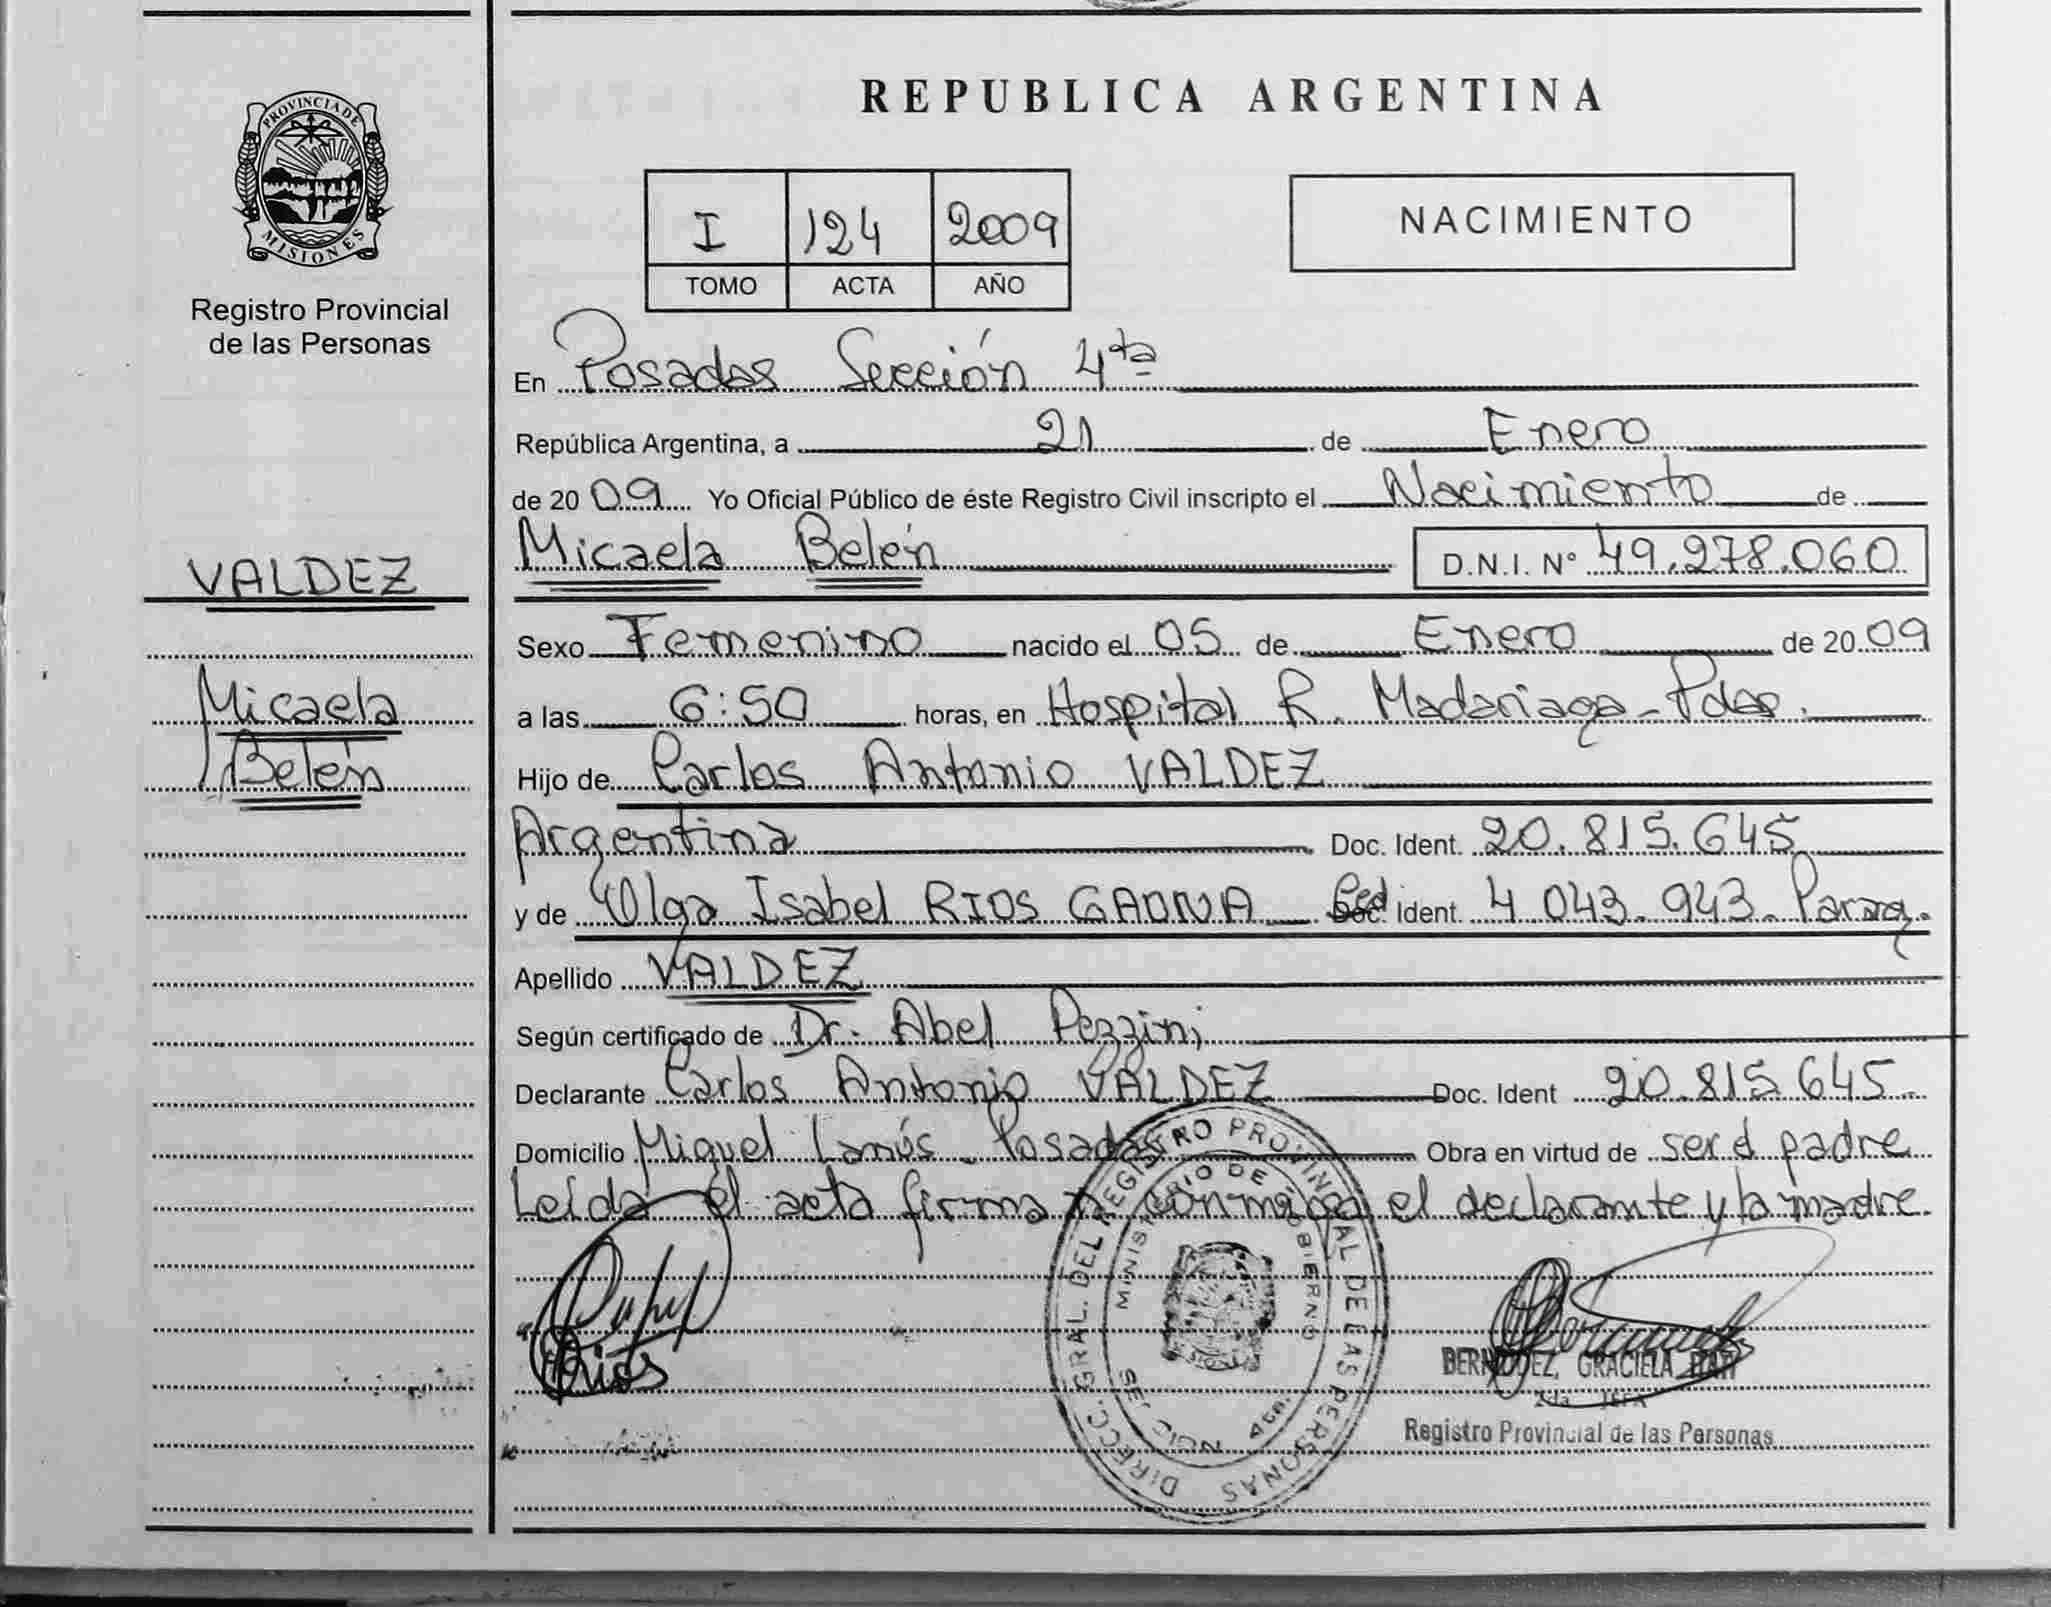 PROVINCIA DE
MISIONES
Registro Provincial
de las Personas
VALDEZ
Micaela
Belén
REPUBLICA ARGENTINA
I 124 2009
TOMO ACTA AÑO
NACIMIENTO
En Posadas Sección 4ta
República Argentina, a 21 de Enero
de 2009 Yo Oficial Público de éste Registro Civil inscripto el Nacimiento de
Micaela Belén D.N.I. N° 49.278.060
Sexo Femenino nacido el 05 de Enero de 2009
a las 6:50 horas, en Hospital R. Madariaga - Pdas.
Hijo de Carlos Antonio VALDEZ
Argentina Doc. Ident. 20.815.645
y de Olga Isabel RIOS GAONA Ced Ident. 4 043.943. Parag.
Apellido VALDEZ
Según certificado de Dr. Abel Pezzini
Declarante Carlos Antonio VALDEZ Doc. Ident 20.815.645
Domicilio Miguel Lanús - Posadas Obra en virtud de ser el padre
Leída el acta firman conmigo el declarante y la madre
Rios
DIRECC. GRAL. DEL REGISTRO PROVINCIAL DE LAS PERSONAS
MINISTERIO DE GOBIERNO
BERMUDEZ, GRACIELA ITATI
2da JEFA
Registro Provincial de las Personas